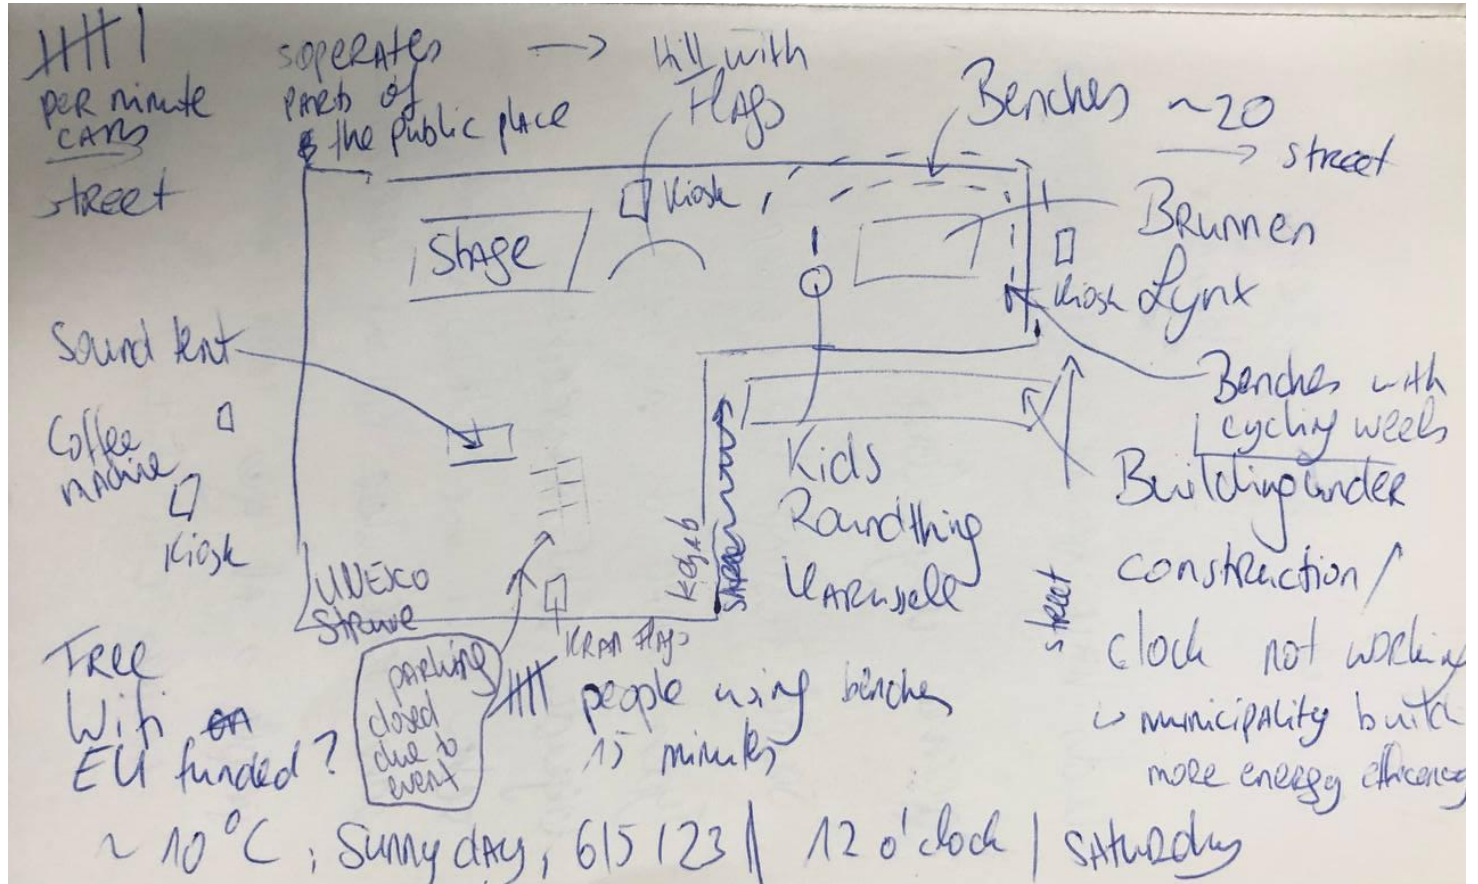 per minute
cars
street
soperates
parts of
the public place
→ Hill with
Flags
Benches ~20
→ street
Kiosk
Stage
Brunnen
Lynx
Kiosk
Sound tent
Coffee
machine
Kiosk
Benches with
cycling weels
Building under
construction /
clock not working
municipality build
more energy efficency
Kids
Roundthing
Karussell
Kebab
street
UNESCO
Struve
Kran Flags
parking
closed
due to
event
people using benches
15 minutes
Free
Wifi
EU funded?
~ 10°C, Sunny day, 6/5/23 | 12 o'clock | Saturday